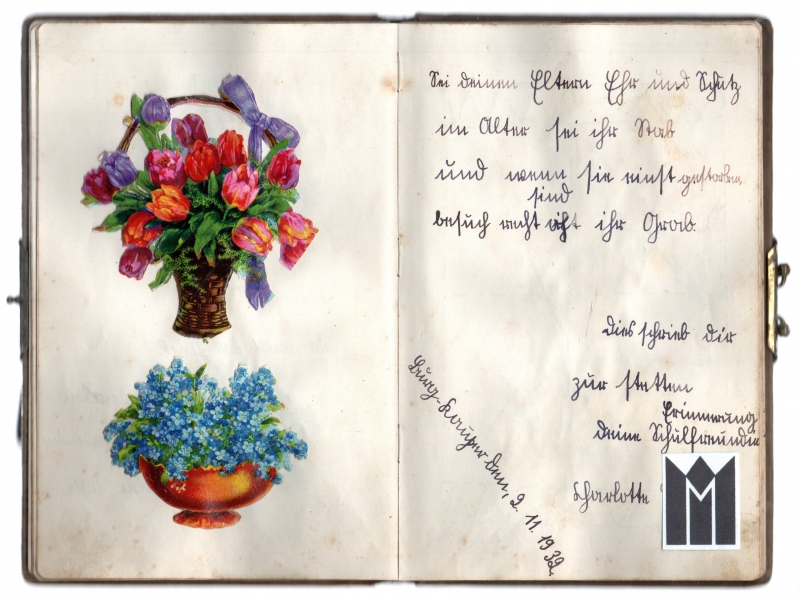 Sei deinen Eltern Ehr und Schutz
im Alter sei ihr Stab
und wenn sie einst gestorben
sind
besuch recht oft ihr Grab.
Dies schrieb dir
zur stetten
Erinnerung
deine Schulfreundin
Charlotte
den, 2. 11. 1932.